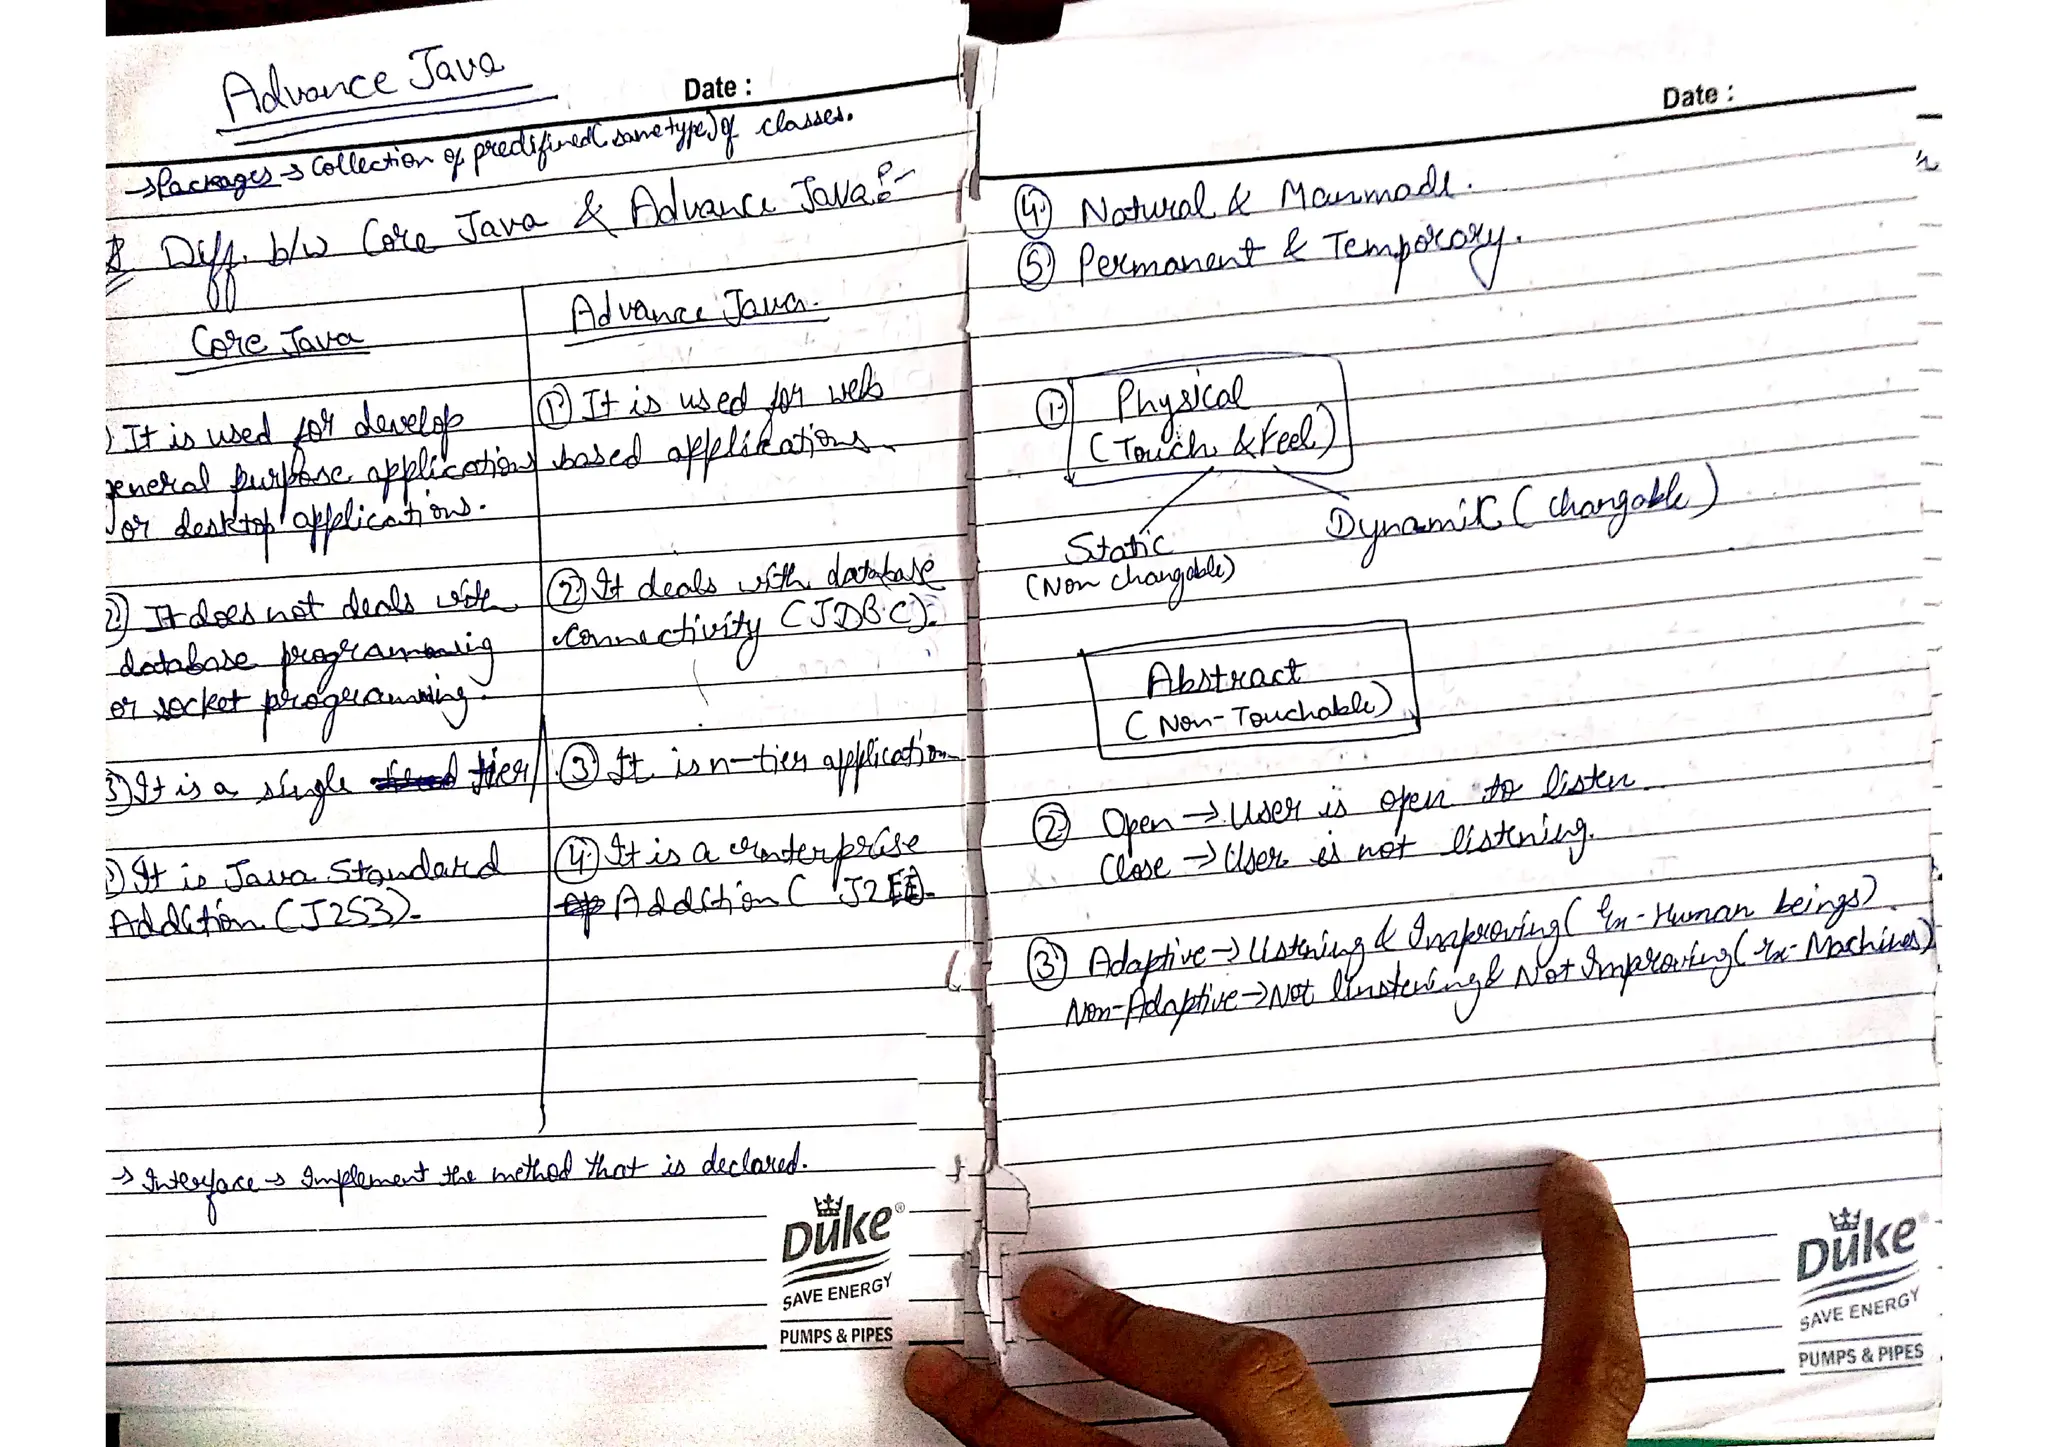 Advance Java
Date :
→ Packages → Collection of predifined (same type) of classes.
Diff. b/w Core Java & Advance Java :-
Core Java
) It is used for develop
general purpose applications
or desktop applications.
2) It does not deals with
database programming
or socket programming.
3) It is a single tier
) It is Java Standard
Addition (J2S3).
Advance Java.
① It is used for web
based applications.
② It deals with database
connectivity (JDBC).
③ It is n-tier application
④ It is a enterprise
Addition (J2EE).
→ Interface → Implement the method that is declared.
Duke®
SAVE ENERGY
PUMPS & PIPES
Date :
④ Natural & Manmade.
⑤ Permanent & Temporory.
① Physical
(Touch & Feel)
Static
(Non changable)
Dynamic (changable)
Abstract
(Non-Touchable)
② Open → User is open to listen
Close → User is not listening.
③ Adaptive → Listening & Improving (Ex - Human beings)
Non-Adaptive → Not linstening & Not Improving (Ex - Machines)
Duke®
SAVE ENERGY
PUMPS & PIPES